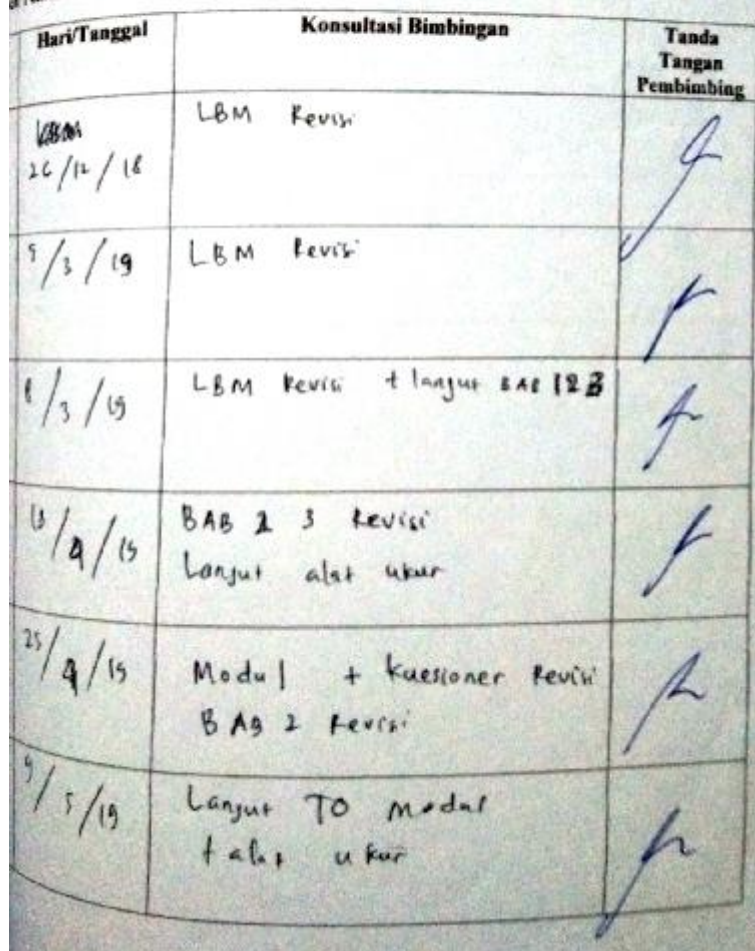 Hari/Tanggal
Konsultasi Bimbingan
Tanda
Tangan
Pembimbing
26/12/18
LBM Revisi
5/3/19
LBM Revisi
8/3/19
LBM Revisi + lanjut BAB 1 2 3
/4/19
BAB 2 3 Revisi
Lanjut alat ukur
25/4/19
Modul + kuesioner Revisi
BAB 2 Revisi
9/5/19
Lanjut TO modul
+ alat ukur